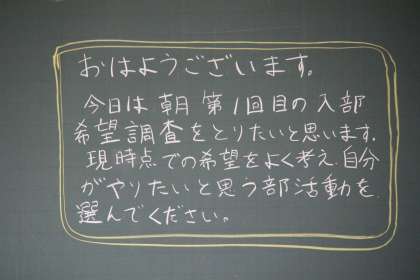 おはようございます。
今日は朝第1回目の入部
希望調査をとりたいと思います.
現時点での希望をよく考え.自分
がやりたいと思う部活動を
選んでください。